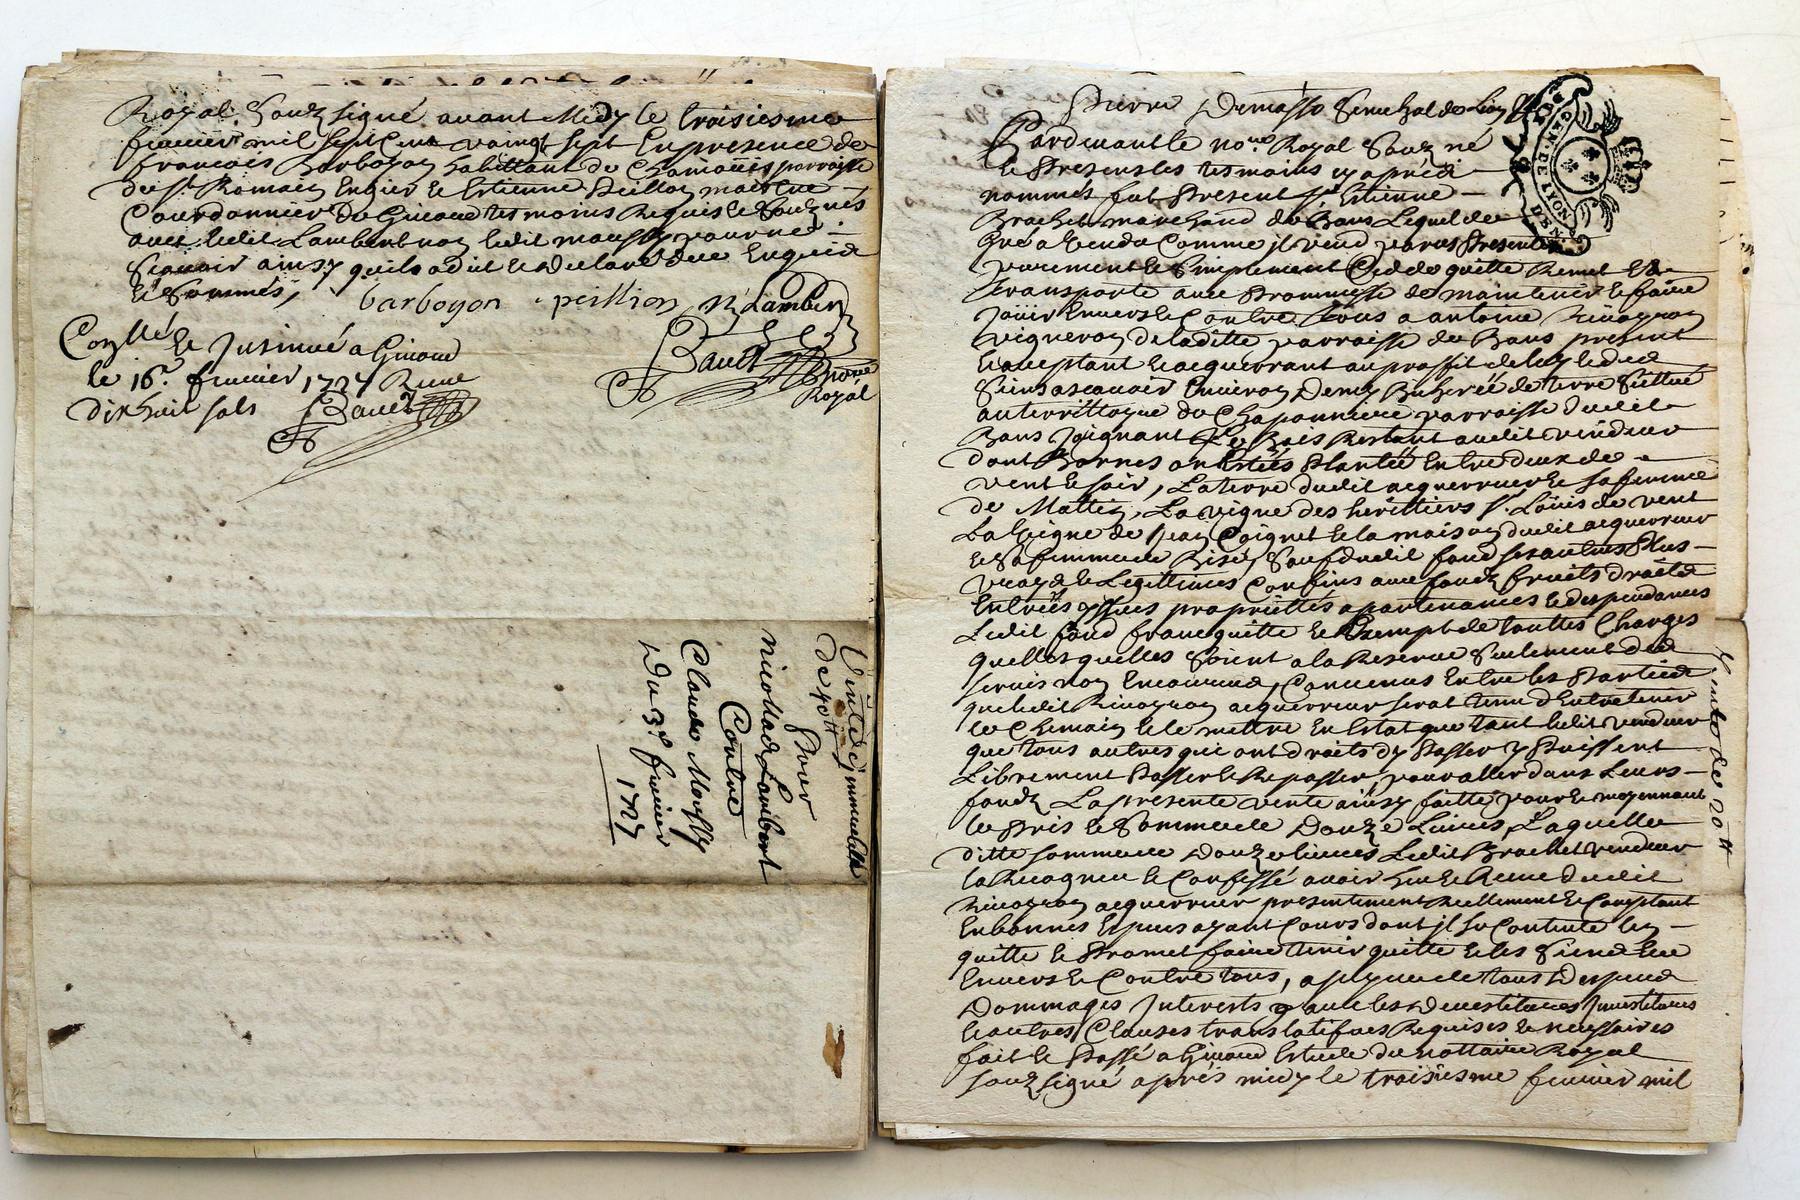 Royal Souz signé avant Midy le troisiesme
feuvrier mil sept cent vaingt sept En presence de
francois Barboyon habittant de Chamoüis parroisse
de St. Romain Engier et Estienne Peillon maistre
Courdonnier du Givord tesmoins Requis et Souz nés
avec ledit Lambert non ledit mously pour ne
Scavoir ainsy quil a dit et declaré de ce Enquis
et Sommés,
barboyon peillion n Lambert
Bauet
Nore
Royal
Conllé et Jnsinué a Givord
le 16e feuvrier 1727 Receu
dix huit sols Bauet
Vente d'jmmeuble
de 40 tt
Pour
nicollas Lambert
Contre
Claude Mously
Du 3e feuvrier
1727
Pierre Demasso Senechal de Lion
Pardevant le nore Royal Souz né
et Presens les tesmoins cy aprés
nommés fut Present sr Estienne
Brachet marchand de Bans Lequel de
Gré a Vendu Comme jl vend par ces Presentes
purement et Simplement Cedde quitte Remet et
transporte avec Promesse de maintenir et faire
Joüir Envers et Contre tous a antoine
vigneron de laditte parroisse de Bans present
acceptant et acquerrant au proffit de luy et des
Siens ascavoir Environ Demy Bicherée de terre Scittué
au territtoyre du Chaponnieu parroisse dudit
Bans Joignant Le Bois Restant audit vendeur
dont Bornes ont Estées Plantée Entre deux de
vent et soir, La terre dudit acquerreur et sa femme
de Mattin, La vigne des herittiers sr. Loüis de vent
La Vigne de Jean Coignet et la maison dudit acquerreur
et Sa femme de Bise, Sauf dudit fond ses autres Plus
vrays et Legittimes Confins avec fonds fruits droits
Entreés yssues propriettés apartenances et despendances
Ledit fond franc quitte et Exempt de touttes Charges
quelles quelles Soient a la Reserve Seulement des
servis non Encourus, Convenus Entre les Parties
que ledit acquerreur serat tenu d'Entretenir
le Chemain et le mettre En Estat que tant ledit vendeur
que tous autres qui ont droits d'y Passer y Puissent
Librement Passer et Repasser, pour aller dans Leurs
fonds La presente vente ainsy faitte pour et moyennant
le Pris et Somme de Douze Livres, Laquelle
ditte somme de douze livres Ledit Brachet vendeur
la Recognu et Confessé avoir heu et Receu dudit
acquerreur presentement Reellement et Comptant
En bonnes Especes ayant Cours dont jl se Contente len
quitte et Promet faire tenir quitte et les Siens
Envers et Contre tous, a peyne de tous Despens
Dommages Jnterests avec les Devestitures Jnvestitures
et autres Clauses translatifves Requises et necessaires
fait et Passé a Givord Estude du nottaire Royal
souz signé aprés midy le troisiesme feuvrier mil
Vente de 20 tt
GEN. DE LYON
DEN.